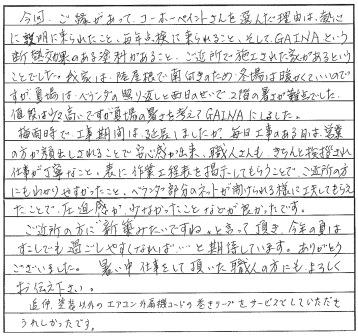 今回、ご縁があって、コーホーペイントさんを選んだ理由は、熱心
に説明に来られたこと、毎年点検に来られること、そして、GAINAという
断熱効果のある塗料があること、ご近所で施工された家があるという
ことでした。我家は、陸屋根で南向きのため、冬場は暖かくていいので
すが夏場は、ベランダの照り返しと西日のせいで2階の暑さが難点でした。
値段は少々高いですが夏場の暑さを考えてGAINAにしました。
梅雨時で工事期間は、延長しましたが、毎日工事のある日は、営業
の方が顔出しされることで安心感が出来、職人さんも、きちんと挨拶され
仕事が丁寧なこと、表に作業工程表を掲示してもらうことで、ご近所の方
にもわかりやすかったこと、ベランダ部分のネットが開けられる様に工夫してもらえ
たことで、圧迫感が少なかったことなどが良かったです。
ご近所の方に"新築みたいですね。"と言って頂き、今年の夏は
すこしでも過ごしやすくなれば…と期待しています。ありがとう
ございました。暑い中仕事をして頂いた職人の方にも、よろしく
お伝え下さい。
追伸、塗装以外のエアコン外高機コードの巻きテープをサービスとしていただき
うれしかったです。